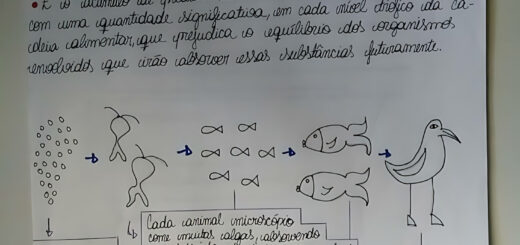 • É o acúmulo de
com uma quantidade significativa, em cada nível trófico da ca-
deia alimentar, que prejudica o equilíbrio dos organismos
envolvidos que irão absorver essas substâncias futuramente.
Cada animal microscópio
come muitas algas, absorvendo